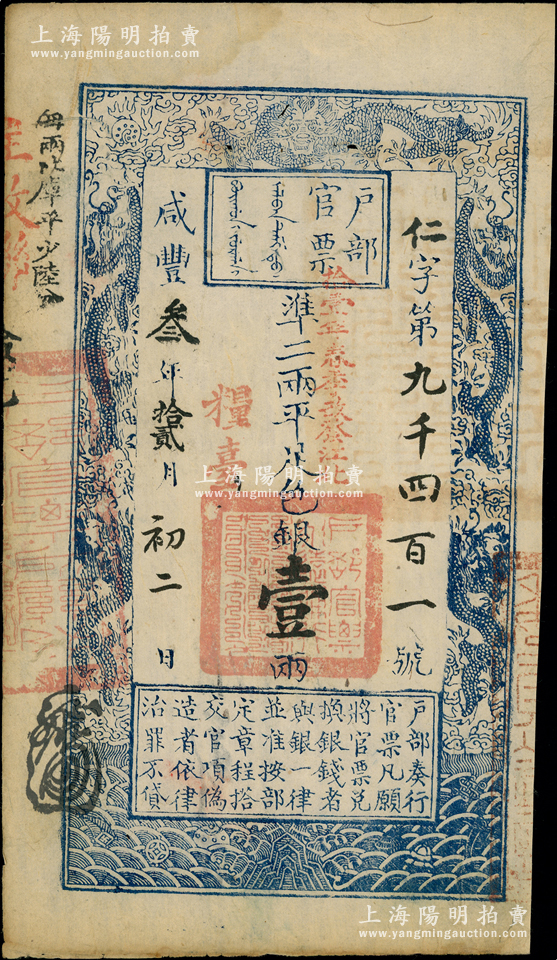 上海陽明拍賣
www.yangmingauction.com
戶部
官票
仁字第九千四百一號
準二兩平足色銀壹兩
咸豐叁年拾貳月初二日
糧臺
每兩比庫平少陸分
戶部奏行
官票凡願
將官票兌
換銀錢者
與銀一律
並准按部
定章程搭
交官項偽
造者依律
治罪不貸
上海陽明拍賣
www.yangmingauction.com
上海陽明拍賣
www.yangmingauction.com